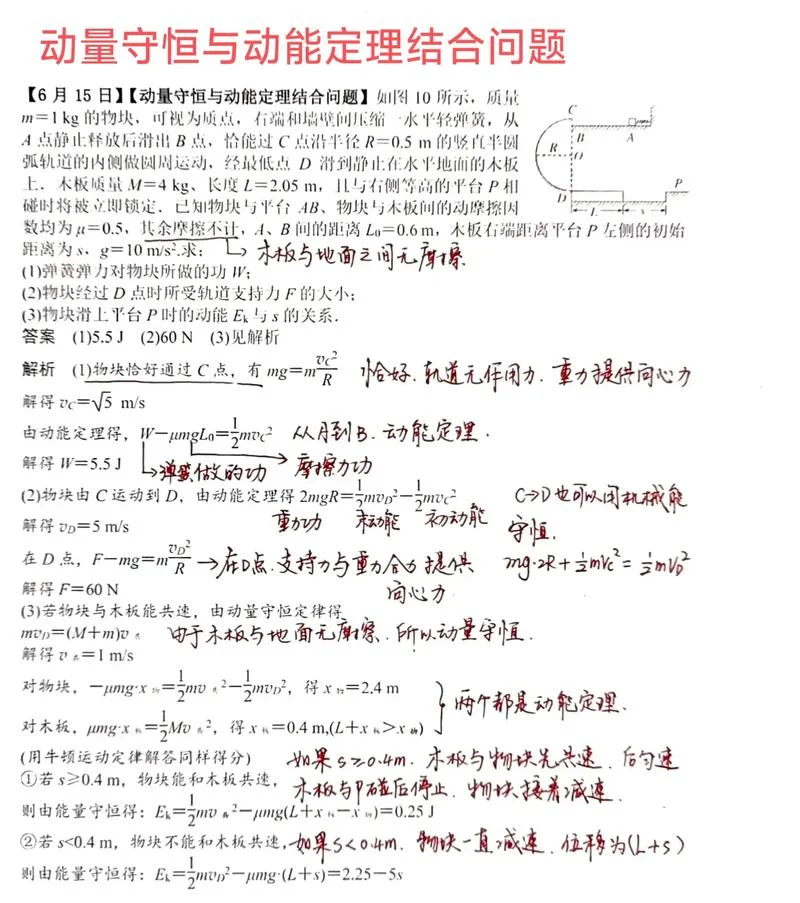 动量守恒与动能定理结合问题
【6 月 15 日】【动量守恒与动能定理结合问题】如图 10 所示，质量
m＝1 kg 的物块，可视为质点，右端和墙壁间压缩一水平轻弹簧，从
A 点静止释放后滑出 B 点，恰能过 C 点沿半径 R＝0.5 m 的竖直半圆
弧轨道的内侧做圆周运动，经最低点 D 滑到静止在水平地面的木板
上．木板质量 M＝4 kg、长度 L＝2.05 m，且与右侧等高的平台 P 相
碰时将被立即锁定．已知物块与平台 AB、物块与木板间的动摩擦因
数均为 μ＝0.5，其余摩擦不计，A、B 间的距离 L₀＝0.6 m，木板右端距离平台 P 左侧的初始
距离为 s，g＝10 m/s².求：
木板与地面之间无摩擦
C
B
A
R
O
D
P
L
s
(1)弹簧弹力对物块所做的功 W；
(2)物块经过 D 点时所受轨道支持力 F 的大小；
(3)物块滑上平台 P 时的动能 Eₖ与 s 的关系．
答案 (1)5.5 J (2)60 N (3)见解析
解析 (1)物块恰好通过 C 点，有 mg＝mv_C²/R 恰好．轨道无作用力．重力提供向心力
解得 v_C＝√5 m/s
由动能定理得，W－μmgL₀＝1/2mv_C² 从A到B．动能定理．
解得 W＝5.5 J 弹簧做的功 摩擦力功
(2)物块由 C 运动到 D，由动能定理得 2mgR＝1/2mv_D²－1/2mv_C² C→D也可以用机械能
重力功 末动能 初动能 守恒．
解得 v_D＝5 m/s
在 D 点，F－mg＝mv_D²/R →在D点．支持力与重力合力提供 mg·2R+1/2mv_C²=1/2mv_D²
向心力
解得 F＝60 N
(3)若物块与木板能共速，由动量守恒定律得
mv_D＝(M＋m)v共 由于木板与地面无摩擦．所以动量守恒．
解得 v共＝1 m/s
对物块，－μmg·x物＝1/2mv共²－1/2mv_D²，得 x物＝2.4 m
两个都是动能定理．
对木板，μmg·x板＝1/2Mv共²，得 x板＝0.4 m,(L＋x板＞x物)
(用牛顿运动定律解答同样得分) 如果s≥0.4m．木板与物块先共速．后匀速
①若 s≥0.4 m，物块能和木板共速， 木板与P碰后停止．物块接着减速．
则由能量守恒得：Eₖ＝1/2mv共²－μmg(L＋x板－x物)＝0.25 J
②若 s<0.4 m，物块不能和木板共速， 如果s<0.4m．物块一直减速．位移为(L+s)
则由能量守恒得：Eₖ＝1/2mv_D²－μmg·(L＋s)＝2.25－5s